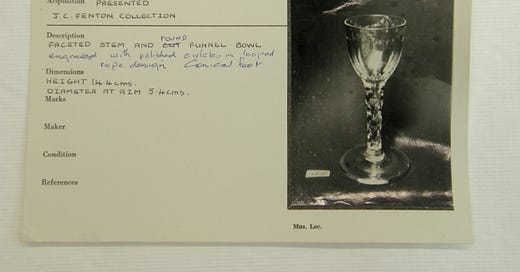 Acquisition PRESENTED
J.C. FENTON COLLECTION
Description ROUND
FACETED STEM AND CUT FUNNEL BOWL
engraved with polished circles in looped
rope design Conical foot
Dimensions
HEIGHT 14.4cms.
DIAMETER AT RIM 5.4cms.
Marks
Maker
Condition
References
Mus. Loc.